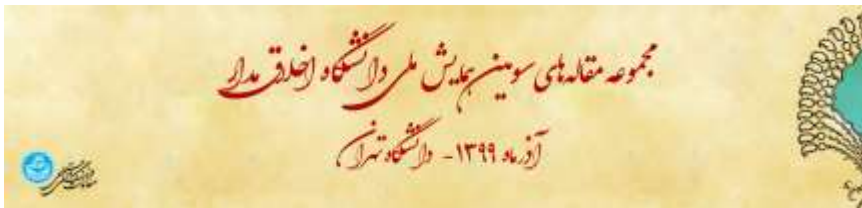 مجموعه مقاله‌های سومین همایش ملی دانشگاه اخلاق مدار
آذر ماه ۱۳۹۹- دانشگاه تهران